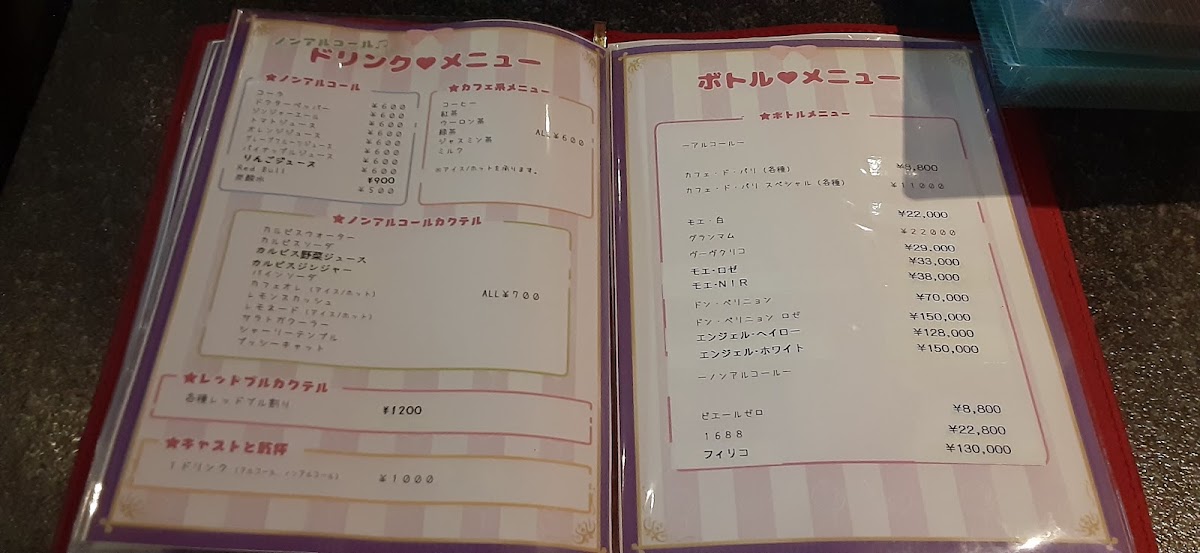 ノンアルコール♫
ドリンク♥メニュー
★ノンアルコール
コーラ ¥600
ドクターペッパー ¥600
ジンジャーエール ¥600
トマトジュース ¥600
オレンジジュース ¥600
グレープフルーツジュース ¥600
パイナップルジュース ¥600
りんごジュース ¥600
Red Bull ¥900
炭酸水 ¥500
★カフェ系メニュー
コーヒー
紅茶
ウーロン茶
緑茶
ジャスミン茶
ミルク
ALL¥600
※アイス/ホットを承ります。
★ノンアルコールカクテル
カルピスウォーター
カルピスソーダ
カルピス野菜ジュース
カルピスジンジャー
パインソーダ
カフェオレ (アイス/ホット)
レモンスカッシュ
レモネード (アイス/ホット)
サラトガクーラー
シャーリーテンプル
プッシーキャット
ALL¥700
★レッドブルカクテル
各種レッドブル割り ¥1200
★キャストと乾杯
1ドリンク (アルコール、ノンアルコール) ¥1000
ボトル♥メニュー
★ボトルメニュー
ーアルコールー
カフェ・ド・パリ (各種) ¥8,800
カフェ・ド・パリ スペシャル (各種) ¥11000
モエ・白 ¥22,000
グランマム ¥22000
ヴーヴクリコ ¥29,000
モエ・ロゼ ¥33,000
モエ・NIR ¥38,000
ドン・ペリニョン ¥70,000
ドン・ペリニョン ロゼ ¥150,000
エンジェル・ヘイロー ¥128,000
エンジェル・ホワイト ¥150,000
ーノンアルコールー
ピエールゼロ ¥8,800
1688 ¥22,800
フィリコ ¥130,000